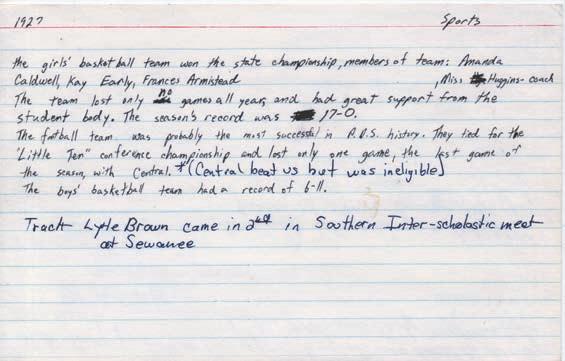 1927 Sports
the girls' basketball team won the state championship, members of team: Amanda
Caldwell, Kay Early, Frances Armistead , Miss Huggins - coach
The team lost only no games all year, and had great support from the
student body. The season's record was 17-0.
The football team was probably the most successful in P.D.S. history. They tied for the
"Little Ten" conference championship and lost only one game, the last game of
the season, with Central. * (Central beat us but was ineligible)
The boys' basketball team had a record of 6-11.
Track Lytle Brown came in 2nd in Southern Inter-scholastic meet
at Sewanee